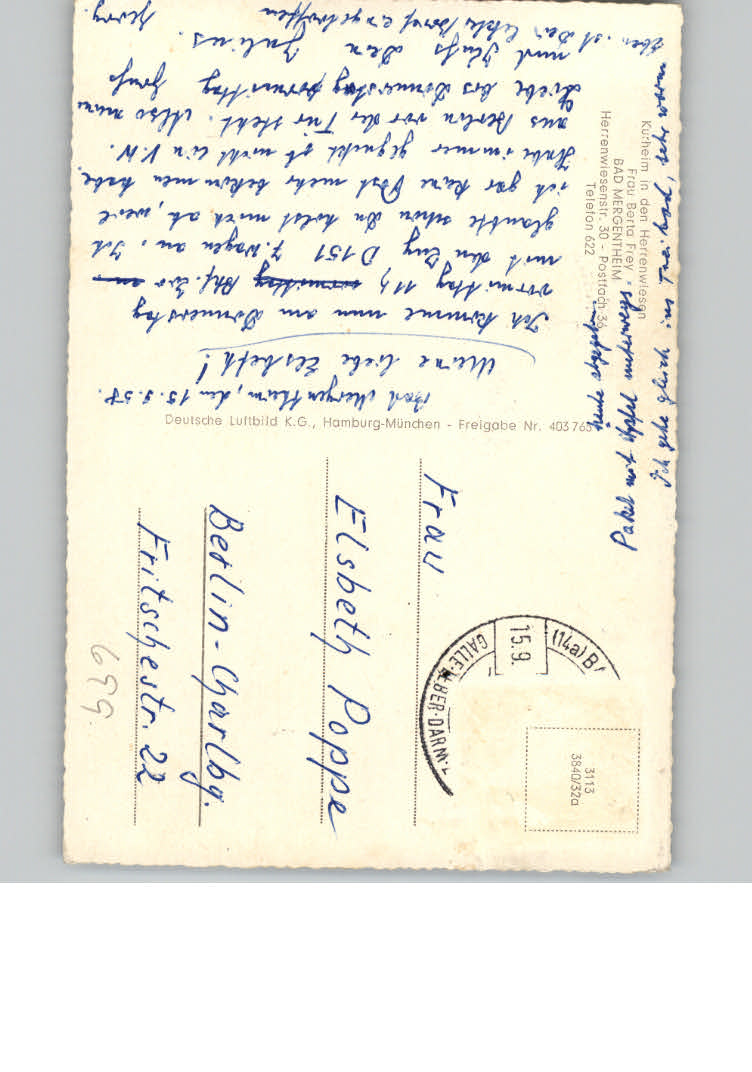 Bad Mergentheim, den 15.9.58.
Meine liebe Elsbeth!
Ich komme nun am Donnerstag
vormittag 11 Bhf. Zoo an
mit den Zug D 151 7. Wagen an. Ich
glaubte schon Du holst mich ab, weil
ich gar keine Post mehr bekommen habe.
Habe immer geguckt ob nicht ein V.W.
aus Berlin vor der Tür steht. Also nun
Liebe bis Donnerstag vormittag
und Kuß Dein
Julius.
Eben ist Dein letzter Brief eingetroffen
Ich gehe gleich ins Freie,
Paket
Kurheim in den Herrenwiesen
Frau Berta Frey
BAD MERGENTHEIM
Herrenwiesenstr. 30 - Postfach 36
Telefon 622
Deutsche Luftbild K.G., Hamburg-München - Freigabe Nr. 403765
Frau
Elsbeth Poppe
Berlin-Charlbg.
Fritschestr. 22
(14a) BA
15.9.
GALLE
BER·DARM
3113
3840/32a
699